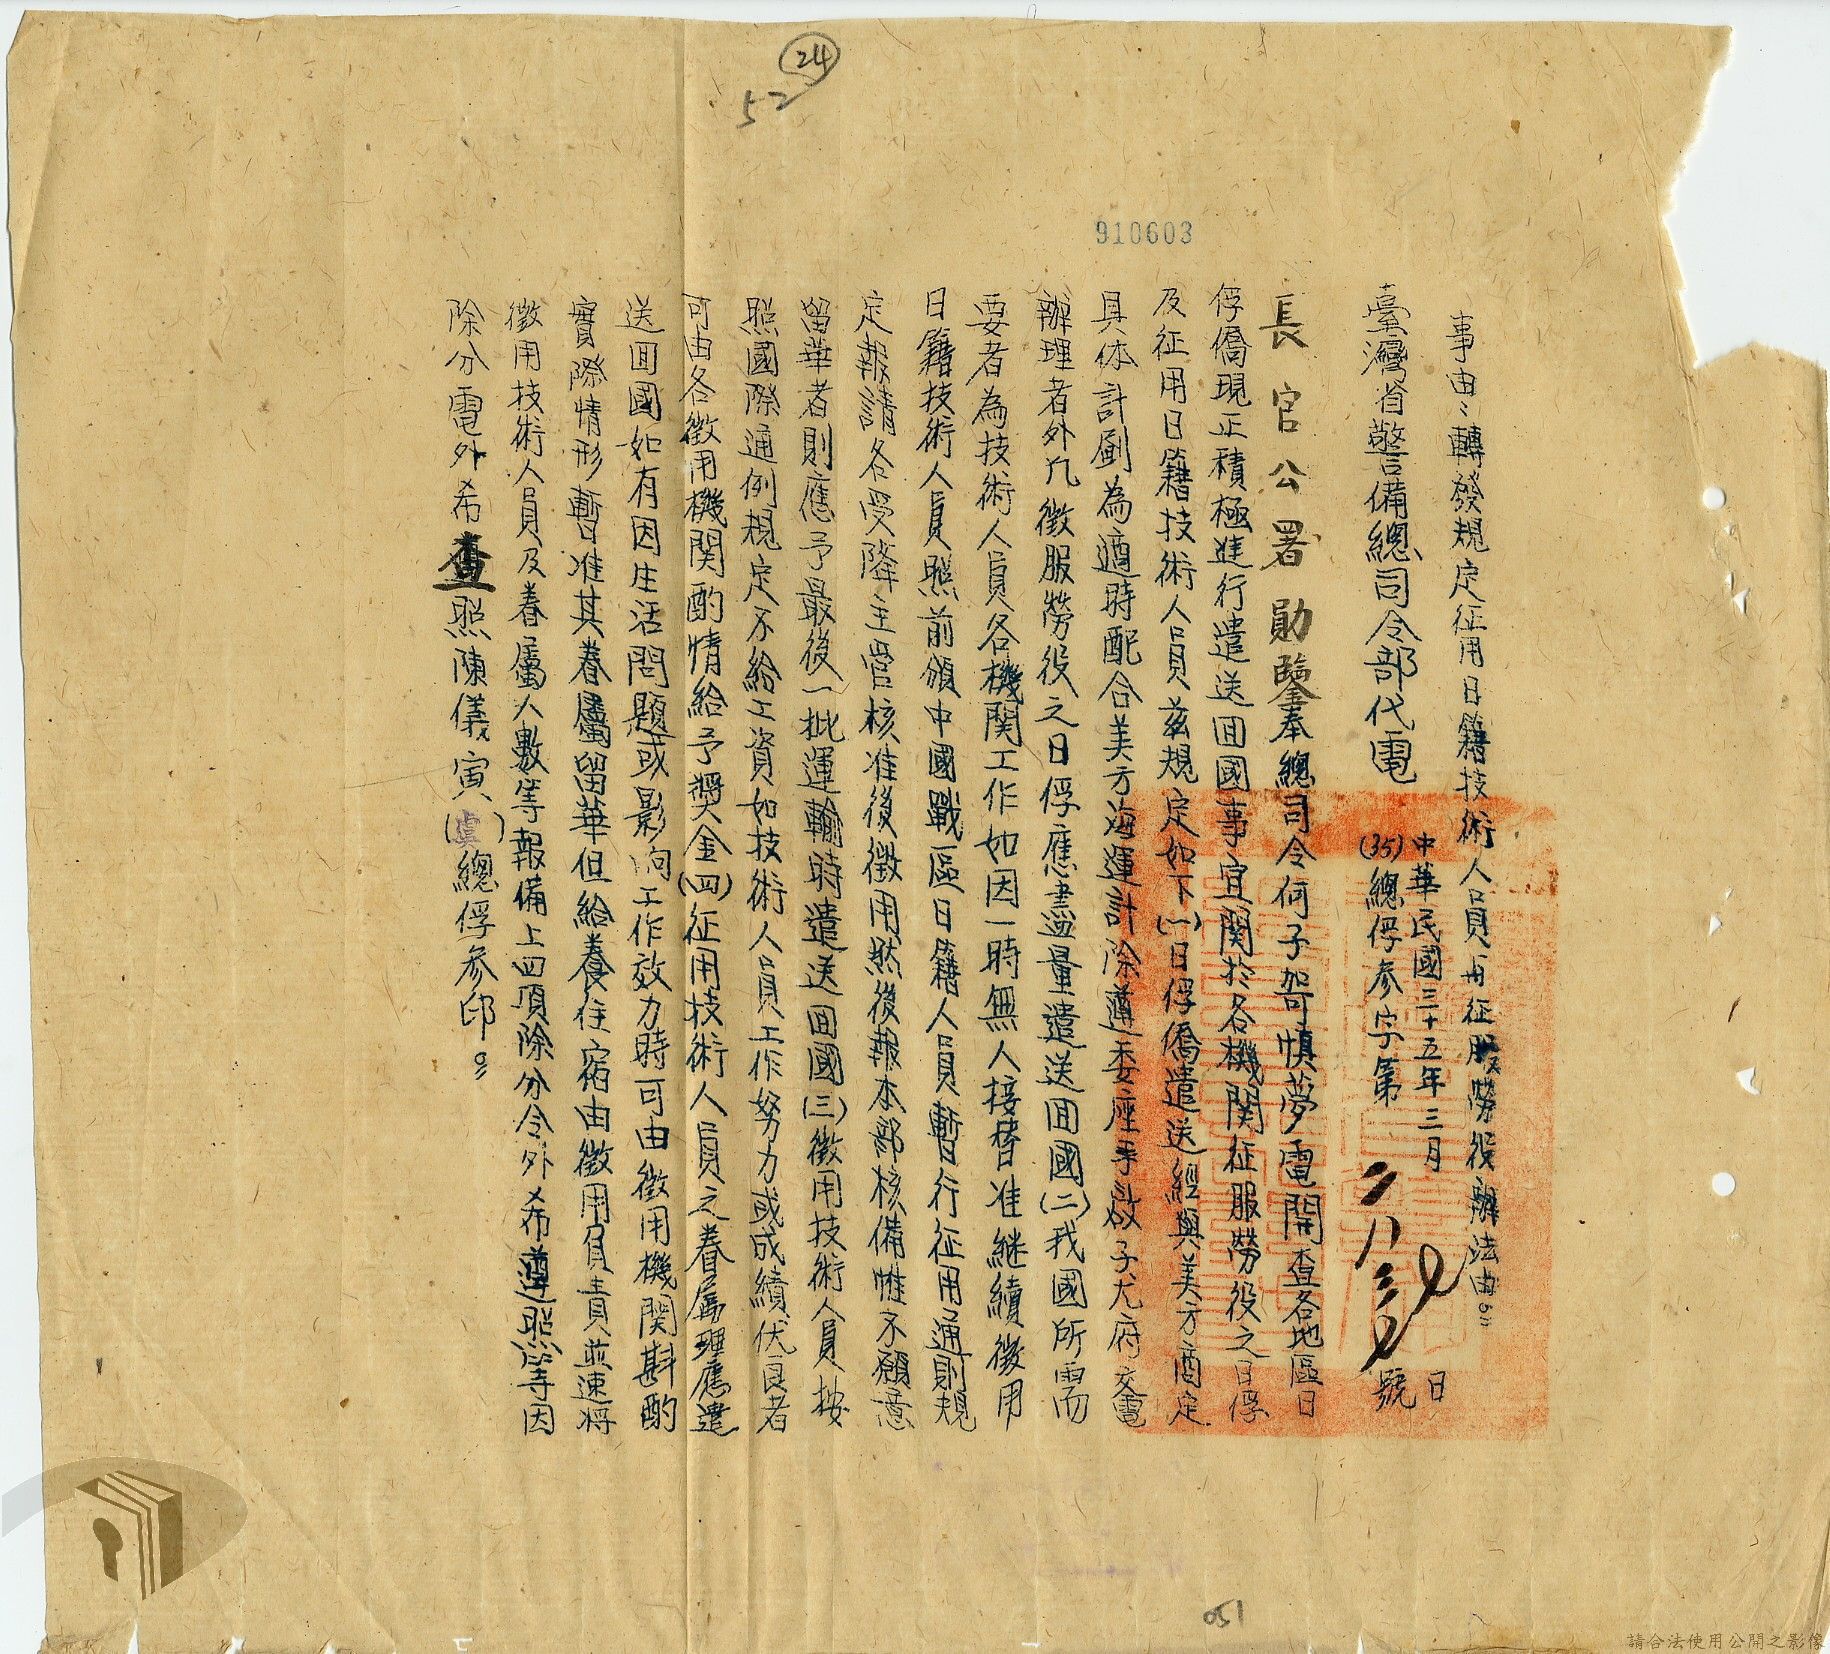 24
52
910603
事由：轉發規定征用日籍技術人員再征服勞役辦法由。
臺灣省警備總司令部代電
中華民國三十五年三月 日
(35)總俘参字第 號
長官公署勛鑒奉總司令何子哿慎夢電開查各地區日
俘僑現正積極進行遣送回國事宜関於各機関征服勞役之日俘
及征用日籍技術人員兹規定如下(一)日俘僑遣送經與美方商定
具体計劃為適時配合美方海運計除遵委座手啟子尤府交電
辦理者外凡徵服勞役之日俘應盡量遣送回國(二)我國所需
要者為技術人員各機関工作如因一時無人接替准継續徵用
日籍技術人員照前頒中國戰區日籍人員暫行征用通則規
定報請各受降主官核准後徵用然後報本部核備惟不願意
留華者則應予最後一批運輸時遣送回國(三)徵用技術人員按
照國際通例規定不給工資如技術人員工作努力或成績优良者
可由各徵用機関酌情給予奬金(四)征用技術人員之眷屬理應遣
送回國如有因生活問題或影响工作效力時可由徵用機関斟酌
實際情形暫准其眷屬留華但給養住宿由徵用負責並速將
徵用技術人員及眷屬人數等報備上四項除分令外希遵照等因
除分電外希查照陳儀寅(虞)總俘参印。
051
請合法使用公開之影像